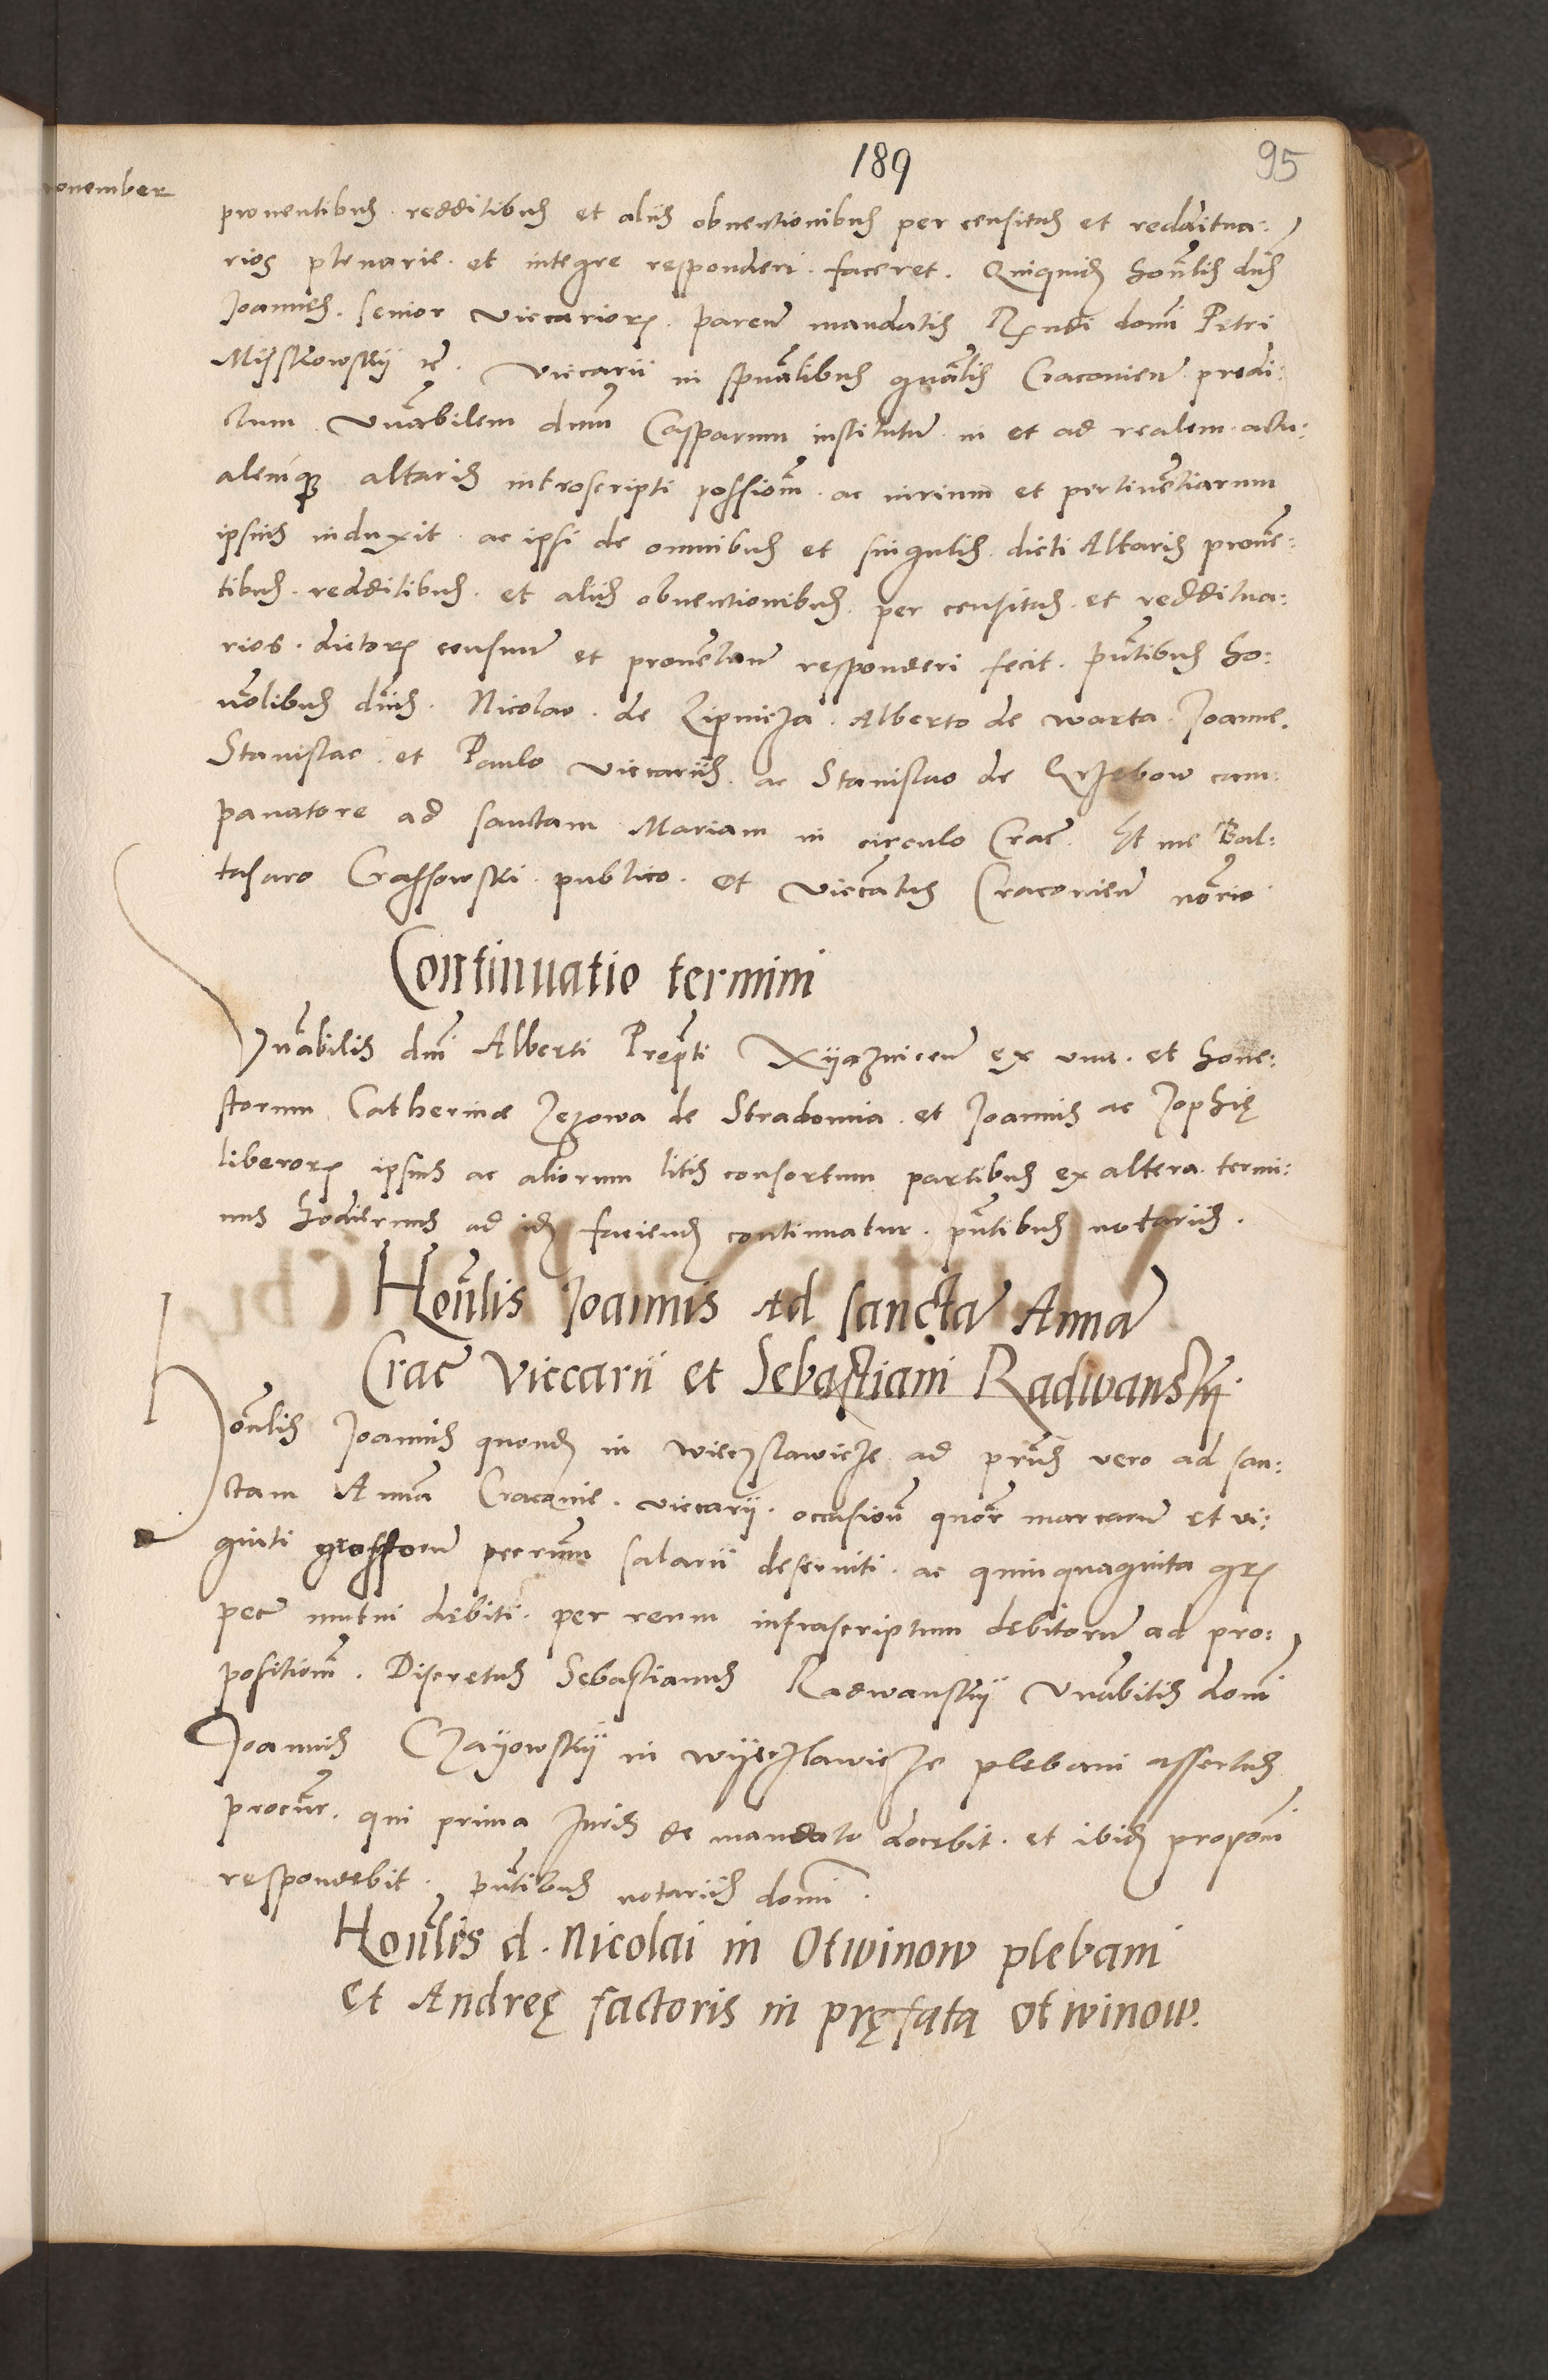 189
95
november
proventibus redditibus et aliis obventionibus per censitas et redditua:
rios plenarie et integre responderi faceret. Quiquid honlis dns
Joannes senior viccarior parens mandatis Rxndi domi Petri
Miszkowskij rc. viccarii in spualibus gnalis Cracovien predi:
ctum vnabilem dnum Casparum institutum in et ad realem actu:
alemq altaris introscripti possiom ac iurium et pertinentiarum
ipsius induxit ac ipsi de omnibus et singulis dicti Altaris prove:
tibus redditibus et aliis obventionibus per censitas et redditua:
rios dictor censuum et proventuum responderi fecit. pntibus ho:
nolibus dnis Nicolao de Lipnicza Alberto de warta Joanne.
Stanislao et Paulo viccariis ac Stanislao de Qrzebow cam:
panatore ad sanctam Mariam in circulo Crac Et me Bal:
tasaro Crassowski publico et viccatus Cracovien norio
Continuatio termini
Vnabilis dni Alberti Prepti Xijaznicen ex una et hone:
storum Catherinae Jezowa de Stradomia et Joannis ac Zophię
liberor ipsius ac aliorum litis consortum partibus ex altera termi:
nus hodiernus ad id faciend continuatur pntibus notariis.
Honlis Joannis ad sancta Anna
Crac Viccarii et Sebastiani Radwanskij.
Honlis Joannis quond in wieczslawicze ad prns vero ad san:
ctam Anna Cracovie viccarij occasion quor marcarum et vi:
ginti grossorum pecrum salarii deserviti ac quinquaginta gr
pec mutui debiti per reum infrascriptum debitorum ad pro:
positiom. Discretus Sebastianus Radwanskij vnabilis domi
Joannis Czayowskij in wijeczlawicze plebani assertus
procur. qui prima Juris de mandato docebit et ibid propom
respondebit. pntibus notariis domi.
Honlis d. Nicolai in Otwinow plebani
et Andreę factoris in pręfata otwinow.